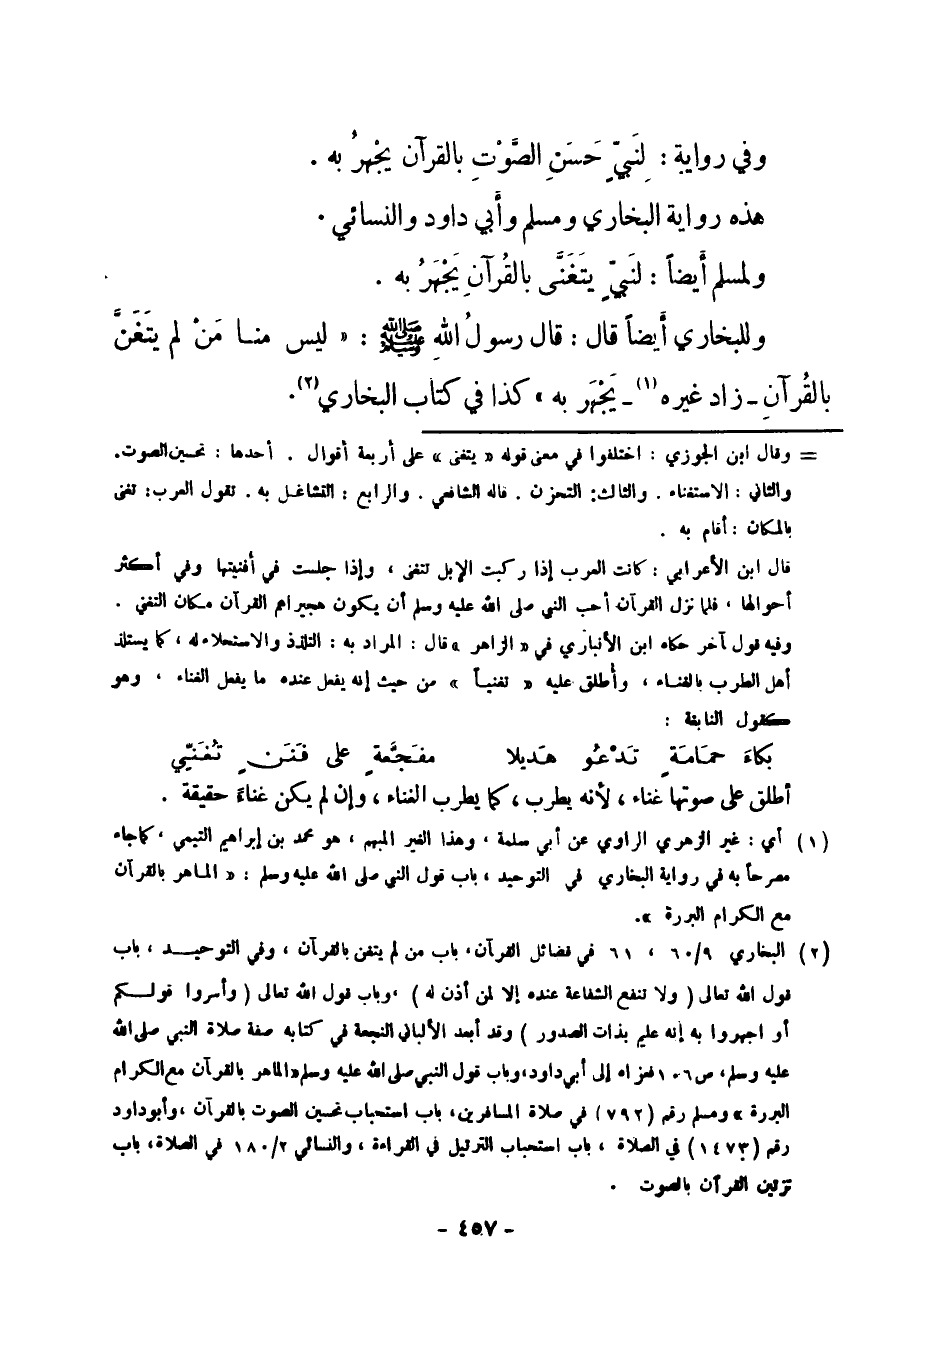 وفي رواية : لِنَبيٍّ حَسَنِ الصَّوْتِ بالقرآن يجْهرُ به .
هذه رواية البخاري ومسلم وأَبي داود والنسائي .
ولمسلم أَيضاً : لنَبيٍّ يتَغَنَّى بالقُرآنِ يَجْهَرُ به .
وللبخاري أَيضاً قال : قال رسولُ اللهِ ﷺ : « ليس منـا مَنْ لم يتَغَنَّ
بالقُرآنِ ـ زاد غيره (١) ـ يَجْهَر به » كذا في كتاب البخاري (٢).
= وقال ابن الجوزي : اختلفوا في معنى قوله « يتغنى » على أربعة أقوال . أحدها : تحسين الصوت.
والثاني : الاستغناء . والثالث: التحزن . قاله الشافعي . والرابع : التشاغل به . تقول العرب: تغنى
بالمكان : أقام به .
قال ابن الأعرابي : كانت العرب إذا ركبت الإبل تتغنى ، وإذا جلست في أفنيتها وفي أكثر
أحوالها ، فلما نزل القرآن أحب النبي صلى الله عليه وسلم أن يكون هجيراهم القرآن مكان التغني .
وفيه قول آخر حكاه ابن الأنباري في « الزاهر » قال : المراد به : التلذذ والاستحلاء له ، كما يستلذ
أهل الطرب بالغناء ، وأُطلق عليه « تغنياً » من حيث إنه يفعل عنده ما يفعل الغناء ، وهو
كقول النابغة :
بكاءَ حمَامَةٍ تَدْعُو هَديلا مفَجَّعةٍ على فَنَنٍ تُغَنِّي
أطلق على صوتها غناء ، لأنه يطرب ، كما يطرب الغناء ، وإن لم يكن غناءً حقيقة .
(١) أي : غير الزهري الراوي عن أبي سلمة ، وهذا الغير المبهم ، هو محمد بن إبراهيم التيمي ، كما جاء
مصرحاً به في رواية البخاري في التوحيد ، باب قول النبي صلى الله عليه وسلم : « الماهر بالقرآن
مع الكرام البررة ».
(٢) البخاري ٦٠/٩ ، ٦١ في فضائل القرآن، باب من لم يتغن بالقرآن ، وفي التوحيـد ، باب
قول الله تعالى ( ولا تنفع الشفاعة عنده إلا لمن أذن له ) ،وباب قول الله تعالى ( وأسروا قولـكم
أو اجهروا به إنه عليم بذات الصدور ) وقد أبعد الألباني النجعة في كتابه صفة صلاة النبي صلى الله
عليه وسلم، ص١٠٦ فعزاه إلى أبي داود،وباب قول النبي صلى الله عليه وسلم«الماهر بالقرآن مع الكرام
البررة » ومسلم رقم (٧٩٢) في صلاة المسافرين، باب استحباب تحسين الصوت بالقرآن ،وأبوداود
رقم (١٤٧٣) في الصلاة ، باب استحباب الترتيل في القراءة ، والنسائي ١٨٠/٢ في الصلاة، باب
تزيين القرآن بالصوت .
- ٤٥٧ -